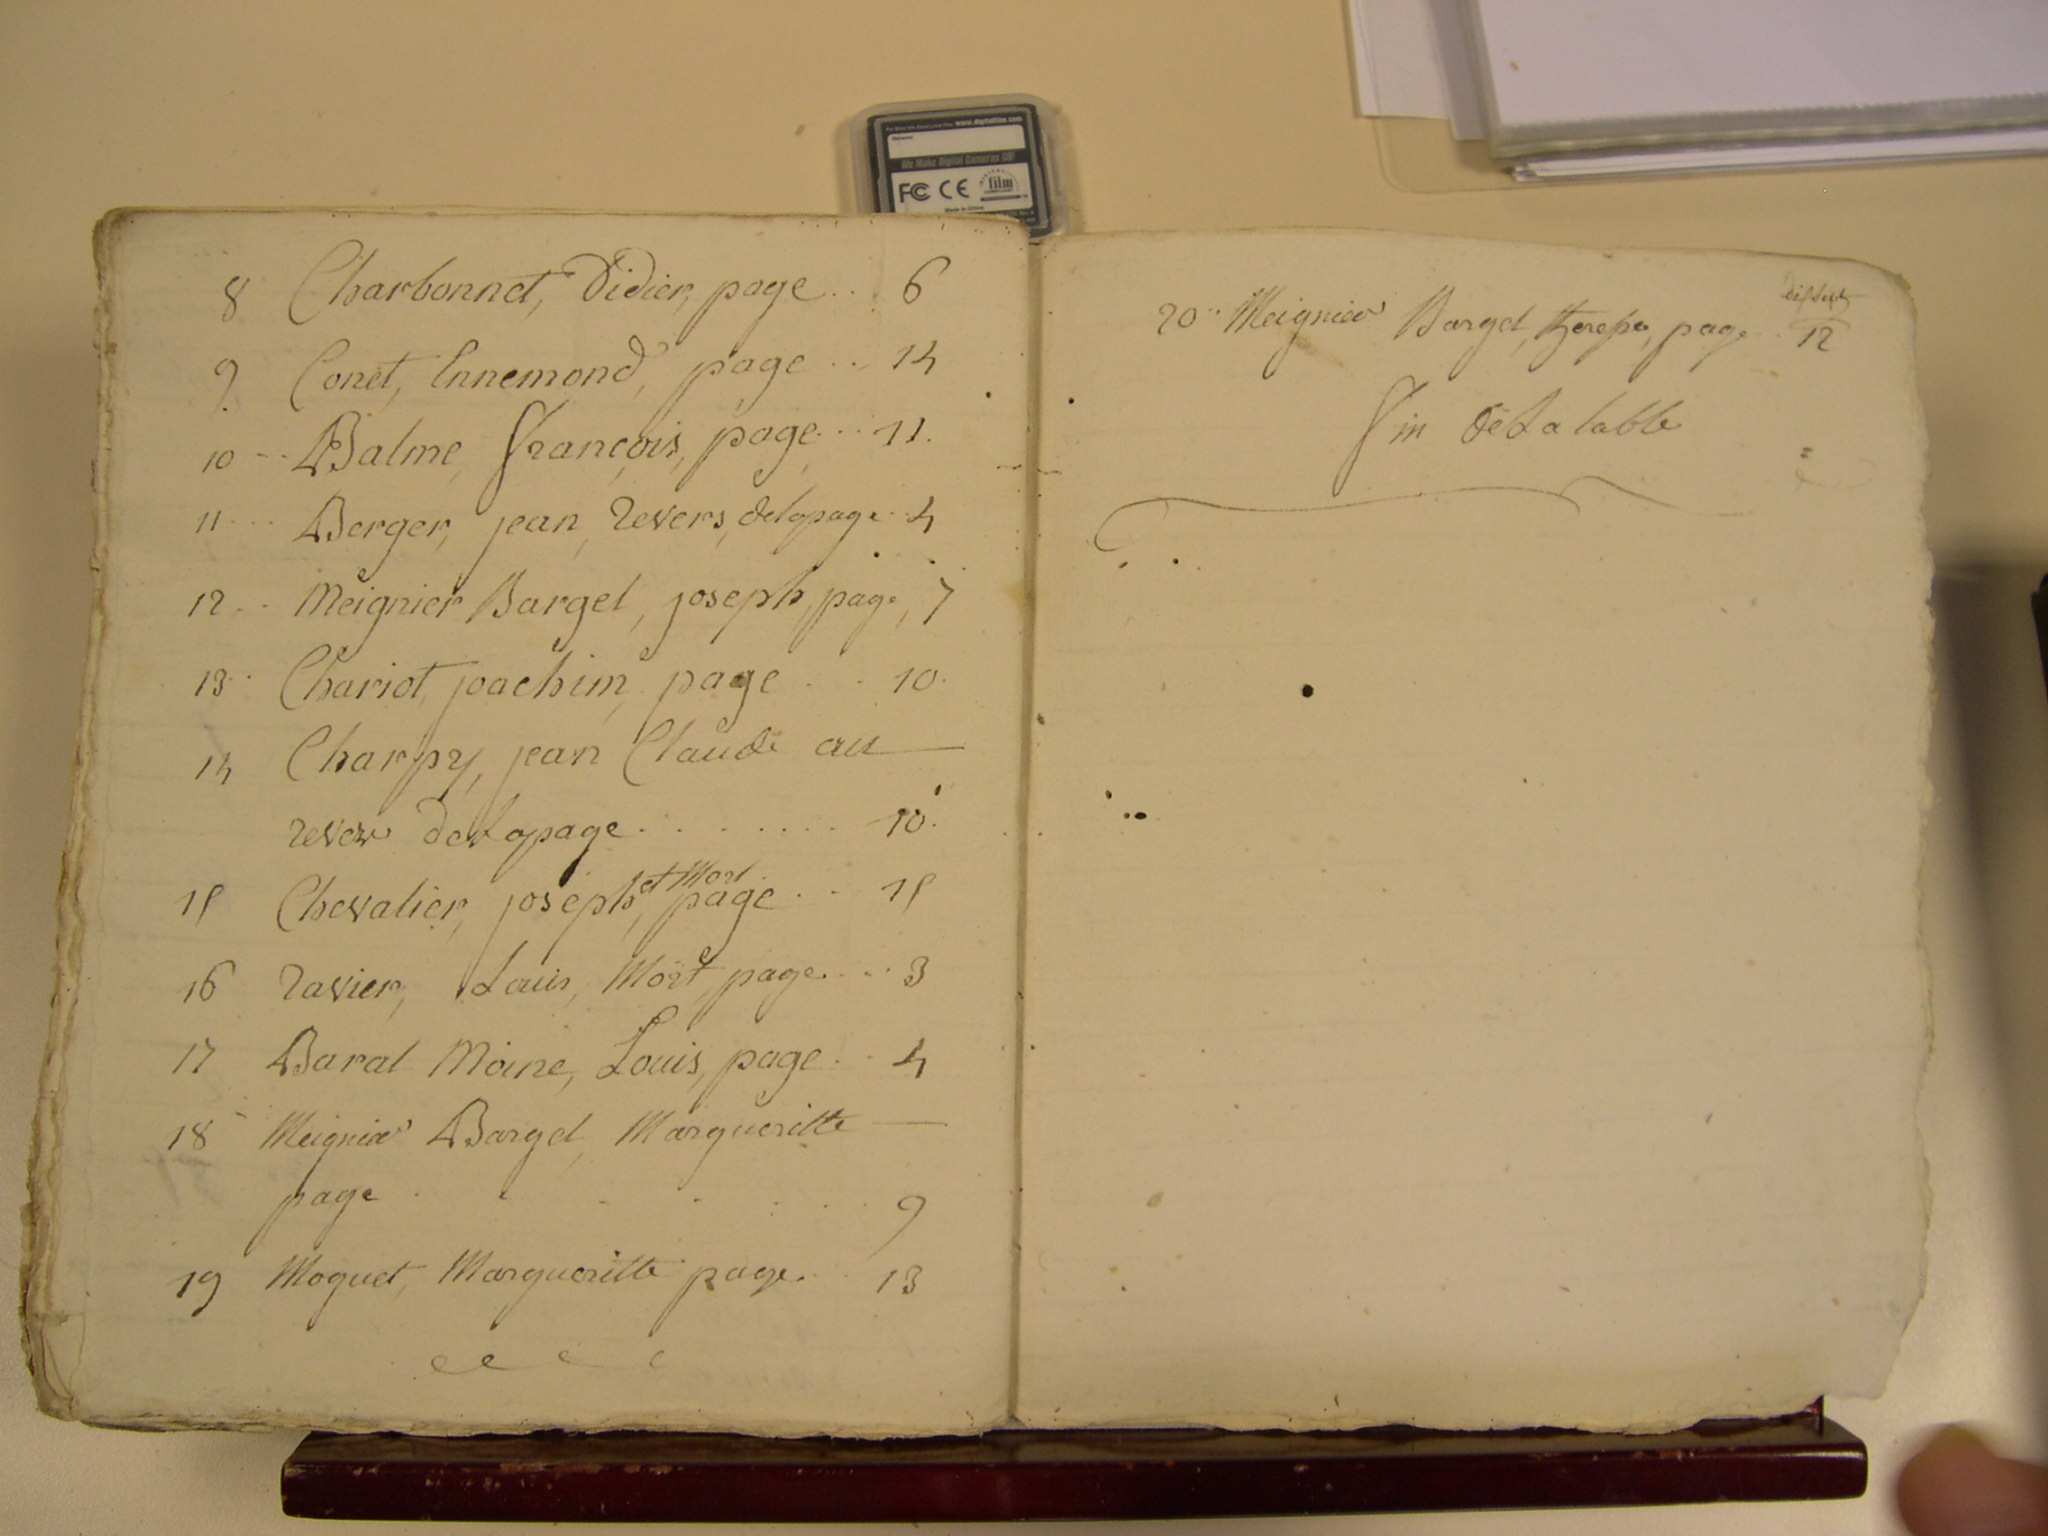 www.digitalfilm.com
We Make Digital Cameras GO!
FC CE
film
8 Charbonnet, Didier, page .. 6
9 Conet, Ennemond, page ... 14
10 -- Balme, François, page ... 11.
11 ... Berger, jean, revers, delapage .. 4
12 .. Meignier Bargel, joseph, page, 7
13 .. Chariot, joachim, page .. 10.
14 Charpy, jean Claude au —
revers delapage ........ 10.
15 Chevalier, joseph, et Mort page ... 15
16 ravier, Louis, Mort, page .... 3
17 Baral Moine, Louis, page .. 4
18 Meignier Bargel, Margueritte —
page ....... 9
19 Moquet, Margueritte page .. 13
20 .. Meignier Bargel, page .. 12
fin de La table